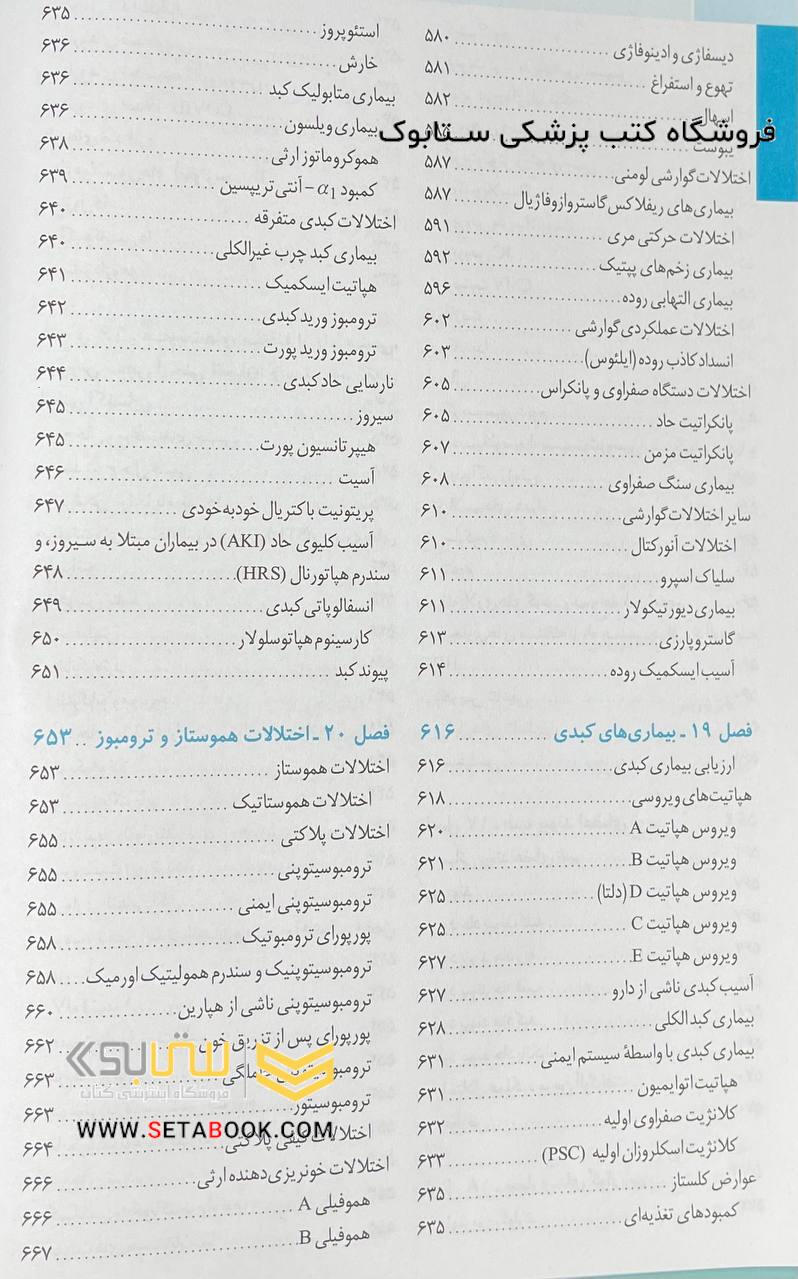 دیسفاژی و ادینوفاژی ۵۸۰
تهوع و استفراغ ۵۸۱
اسهال ۵۸۲
فروشگاه کتب پزشکی ستابوک
یبوست
اختلالات گوارشی لومنی ۵۸۷
بیماری‌های ریفلاکس گاستروازوفاژیال ۵۸۷
اختلالات حرکتی مری ۵۹۱
بیماری زخم‌های پپتیک ۵۹۲
بیماری التهابی روده ۵۹۶
اختلالات عملکردی گوارشی ۶۰۲
انسداد کاذب روده (ایلئوس) ۶۰۳
اختلالات دستگاه صفراوی و پانکراس ۶۰۵
پانکراتیت حاد ۶۰۵
پانکراتیت مزمن ۶۰۷
بیماری سنگ صفراوی ۶۰۸
سایر اختلالات گوارشی ۶۱۰
اختلالات آنورکتال ۶۱۰
سلیاک اسپرو ۶۱۱
بیماری دیورتیکولار ۶۱۱
گاستروپارزی ۶۱۳
آسیب ایسکمیک روده ۶۱۴
فصل ۱۹ ـ بیماری‌های کبدی ۶۱۶
ارزیابی بیماری کبدی ۶۱۶
هپاتیت‌های ویروسی ۶۱۸
ویروس هپاتیت A ۶۲۰
ویروس هپاتیت B ۶۲۱
ویروس هپاتیت D (دلتا) ۶۲۵
ویروس هپاتیت C ۶۲۵
ویروس هپاتیت E ۶۲۷
آسیب کبدی ناشی از دارو ۶۲۷
بیماری کبد الکلی ۶۲۸
بیماری کبدی با واسطهٔ سیستم ایمنی ۶۳۱
هپاتیت اتوایمیون ۶۳۱
کلانژیت صفراوی اولیه ۶۳۲
کلانژیت اسکلروزان اولیه (PSC) ۶۳۳
عوارض کلستاز ۶۳۵
کمبودهای تغذیه‌ای ۶۳۵
استئوپروز ۶۳۵
خارش ۶۳۶
بیماری متابولیک کبد ۶۳۶
بیماری ویلسون ۶۳۶
هموکروماتوز ارثی ۶۳۸
کمبود α1 – آنتی تریپسین ۶۳۹
اختلالات کبدی متفرقه ۶۴۰
بیماری کبد چرب غیرالکلی ۶۴۰
هپاتیت ایسکمیک ۶۴۱
ترومبوز ورید کبدی ۶۴۲
ترومبوز ورید پورت ۶۴۳
نارسایی حاد کبدی ۶۴۴
سیروز ۶۴۵
هیپرتانسیون پورت ۶۴۵
آسیت ۶۴۶
پریتونیت باکتریال خودبه‌خودی ۶۴۷
آسیب کلیوی حاد (AKI) در بیماران مبتلا به سیروز، و
سندرم هپاتورنال (HRS) ۶۴۸
انسفالوپاتی کبدی ۶۴۹
کارسینوم هپاتوسلولار ۶۵۰
پیوند کبد ۶۵۱
فصل ۲۰ ـ اختلالات هموستاز و ترومبوز ۶۵۳
اختلالات هموستاز ۶۵۳
اختلالات هموستاتیک ۶۵۳
اختلالات پلاکتی ۶۵۵
ترومبوسیتوپنی ۶۵۵
ترومبوسیتوپنی ایمنی ۶۵۵
پورپورای ترومبوتیک
ترومبوسیتوپنیک و سندرم همولیتیک اورمیک ۶۵۸
ترومبوسیتوپنی ناشی از هپارین ۶۶۰
پورپورای پس از تزریق خون ۶۶۲
ترومبوسیتوپنی حاملگی ۶۶۳
ترومبوسیتوز ۶۶۳
اختلالات کیفی پلاکتی ۶۶۴
اختلالات خونریزی‌دهنده ارثی ۶۶۶
هموفیلی A ۶۶۶
هموفیلی B ۶۶۷
ستابوک
فروشگاه اینترنتی کتاب
WWW.SETABOOK.COM